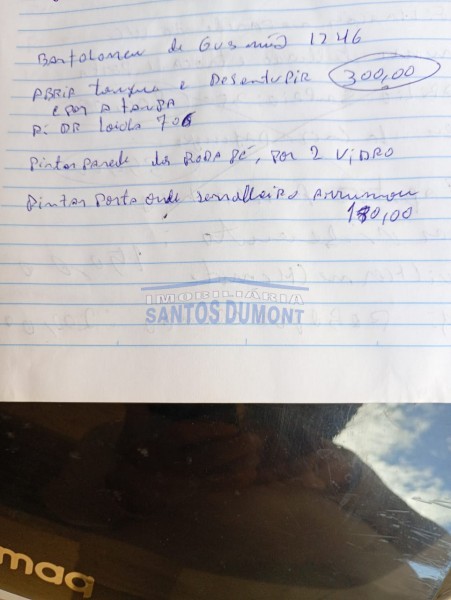 Bartolomeu de Gusmão 1246
ABRIR tampa e Desentupir 300,00
e por a tampa
R: DR Loiola 706
Pintar parede do RODA PÉ, Por 2 VIDRO
Pintar Porta onde serralheiro Arrumou
180,00
IMOBILIÁRIA
SANTOS DUMONT
maq